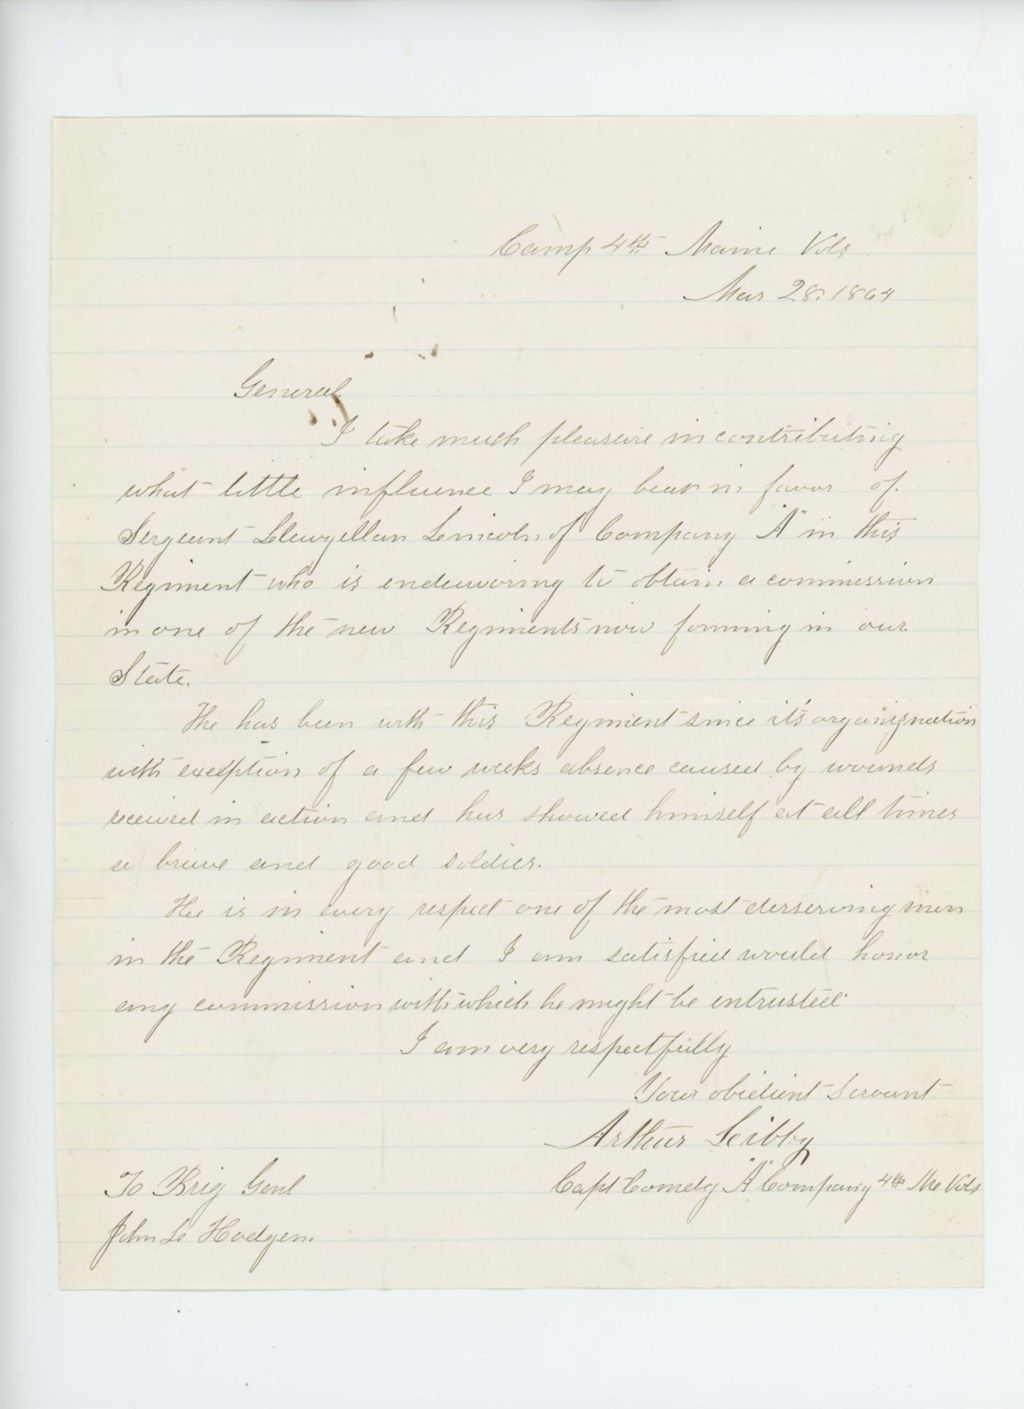 Camp 4th Maine Vols
Mar 28, 1864
General
I take much pleasure in contributing
what little influence I may bear in favor of
Sergeant Llewyellan Lincoln of Company "A" in this
Regiment who is endeavoring to obtain a commission
in one of the new Regiments now forming in our
State.
He has been with this Regiment since it's organization
with exception of a few weeks absence caused by wounds
received in action and has showed himself at all times
a brave and good soldier.
He is in every respect one of the most derserving men
in the Regiment and I am satisfied would honor
any commission with which he might be entrusted
I am very respectfully
Your obedient Servant
Arthur Libby
Capt Comdg "A" Company 4th Me Vols
To Brig Genl
John L Hodgen.